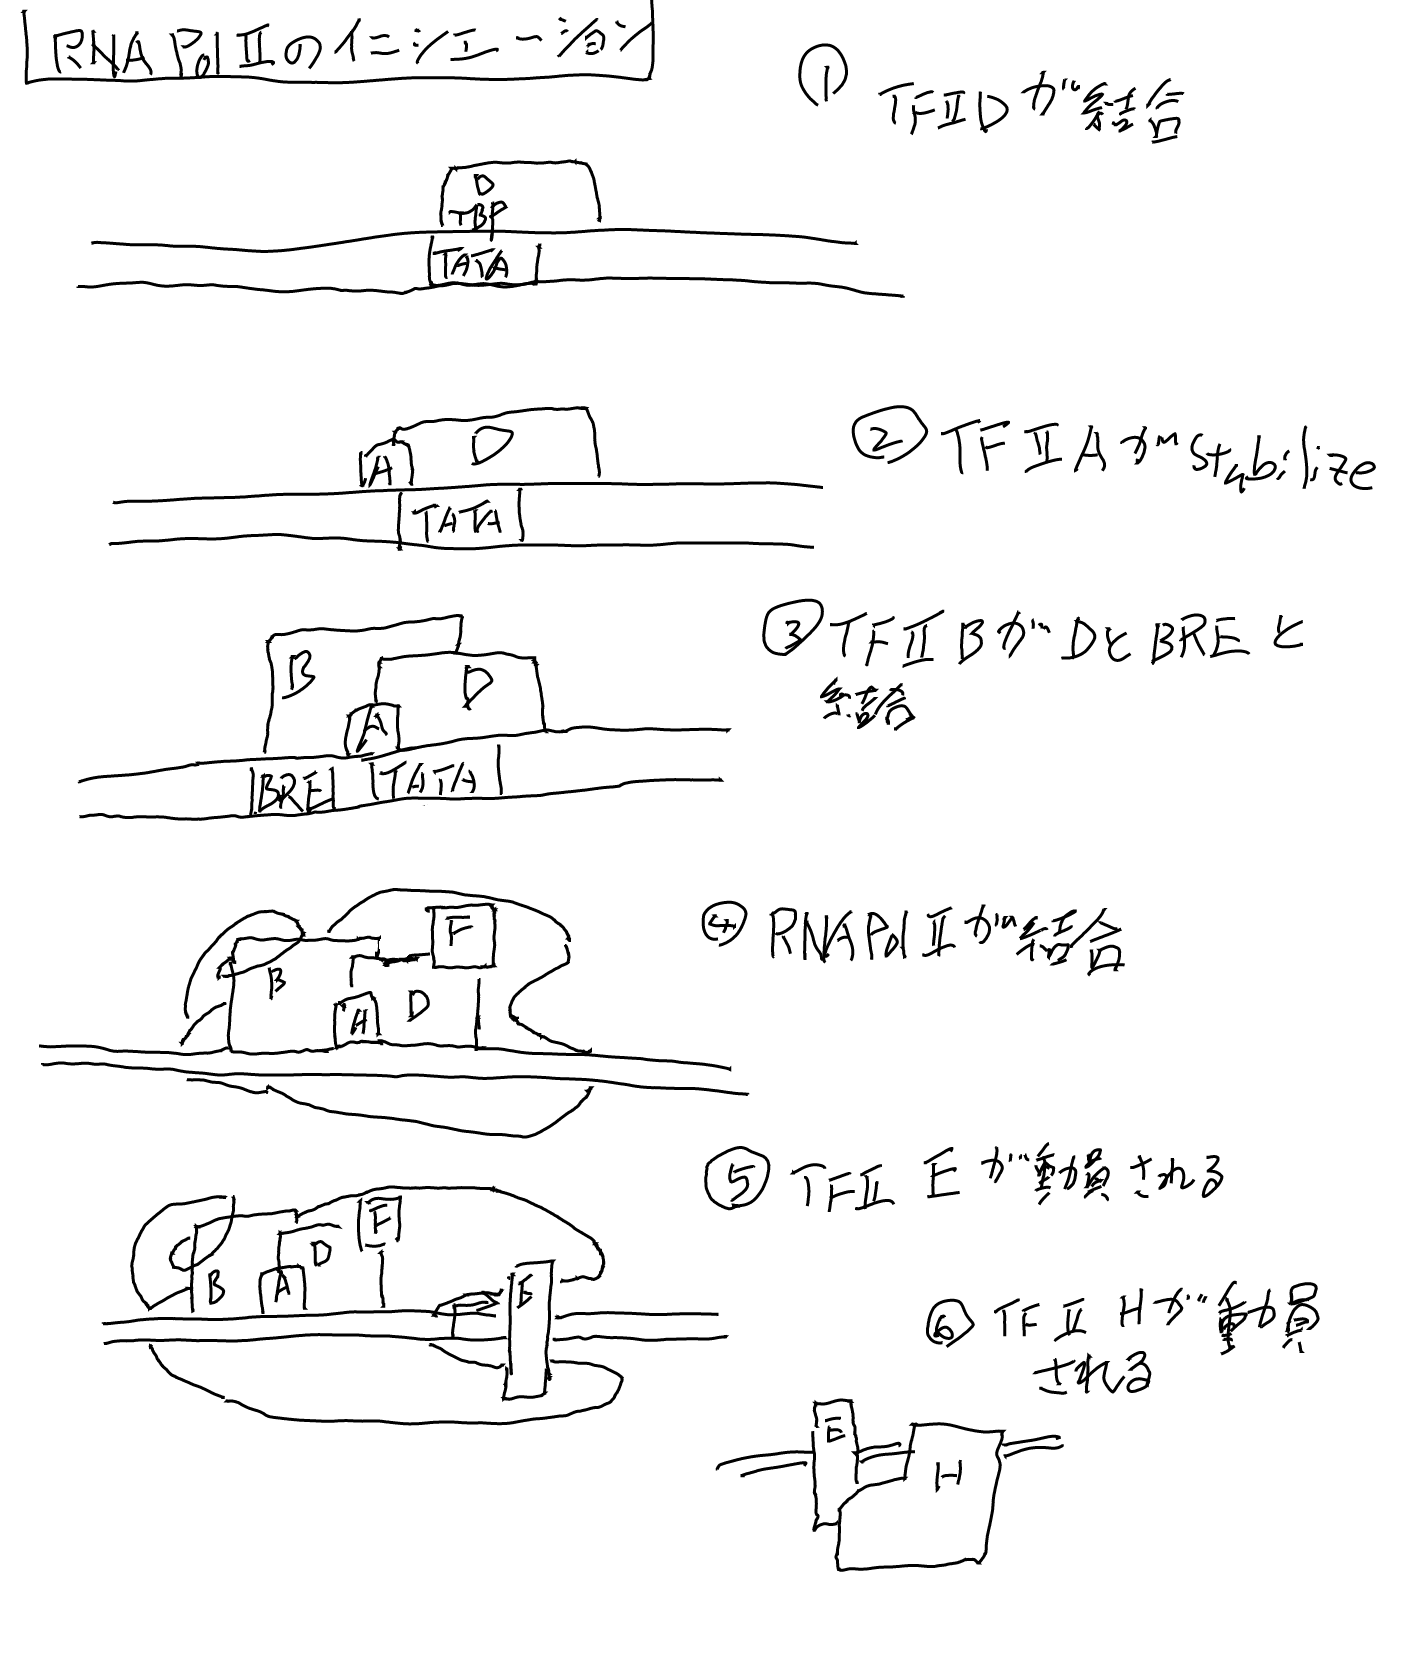 RNA Pol IIのイニシエーション
① TFIIDが結合
D
TBP
TATA
② TFIIAがstabilize
A D
TATA
③ TFIIBがDとBREと
結合
B D
A
BRE TATA
④ RNA Pol IIが結合
F
B D
A
⑤ TFII Eが動員される
F
D
B A E
⑥ TFII Hが動員
される
E
H